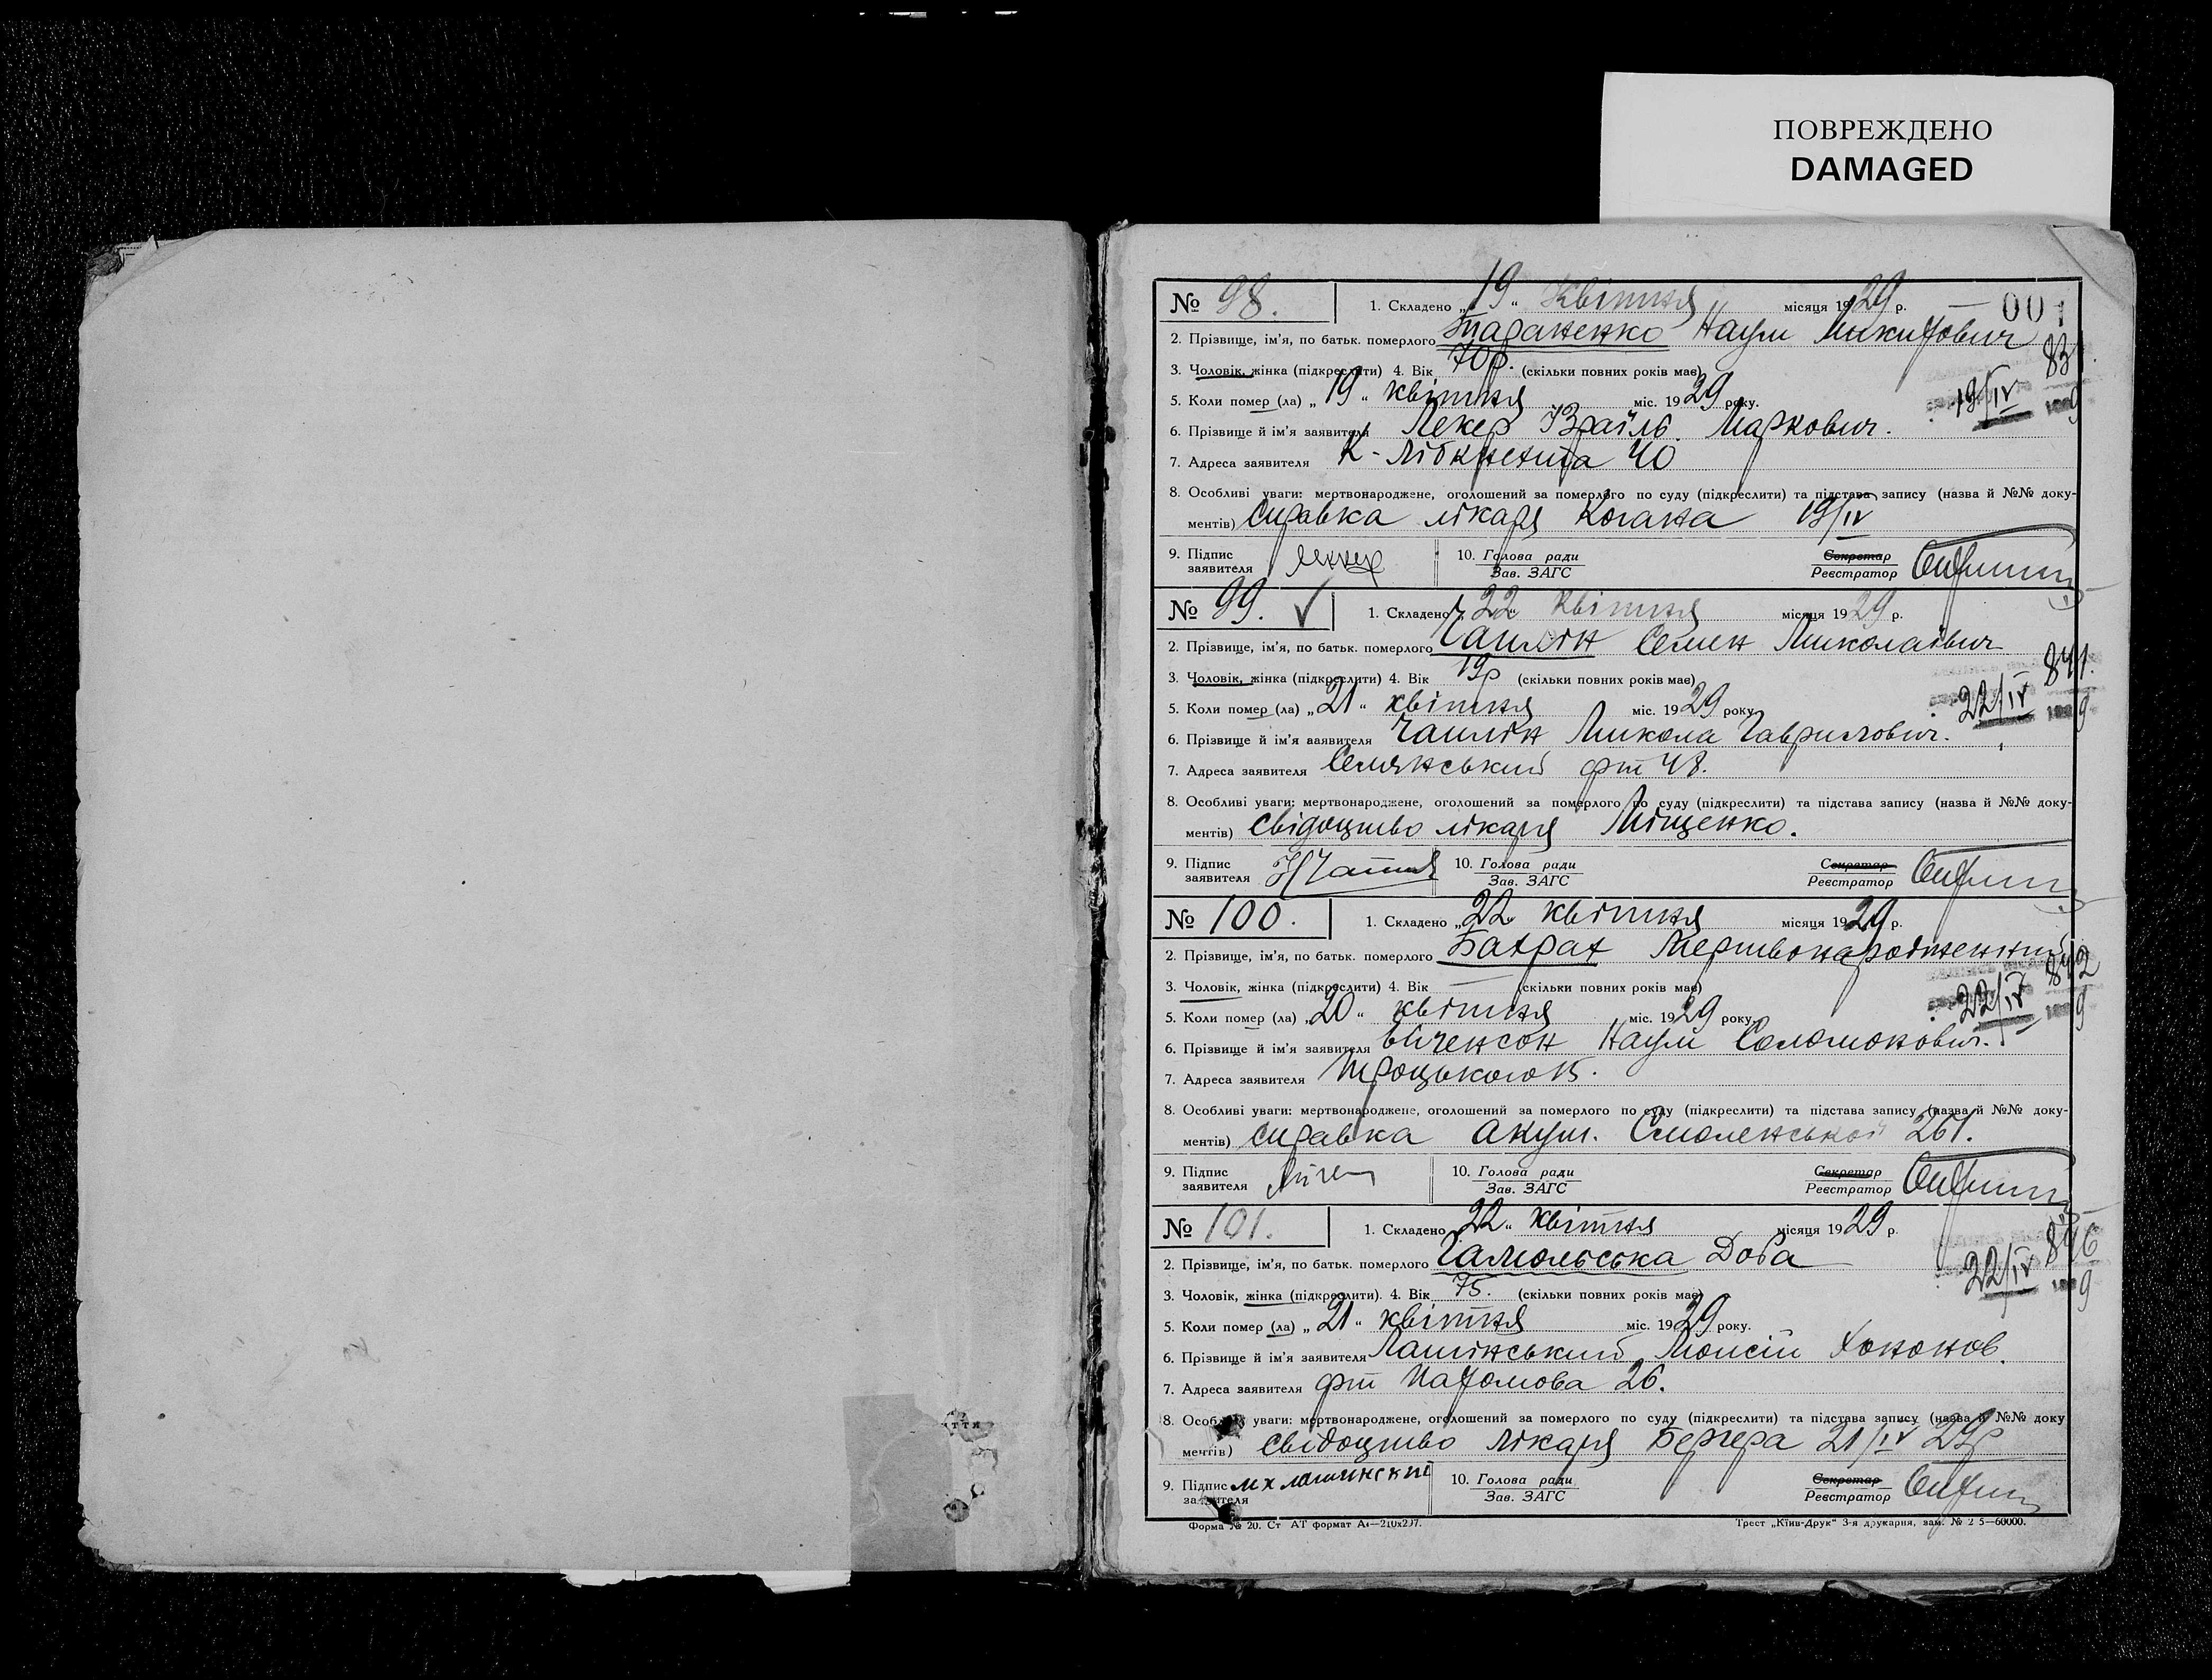 ПОВРЕЖДЕНО
DAMAGED
001
№ 98. 1. Складено „19“ квітня місяця 1929 р.
2. Прізвище, ім'я, по батьк. померлого Тараненко Наум Микитович
83
3. Чоловік, жінка (підкреслити) 4. Вік 70р. (скільки повних років має)
5. Коли помер (ла) „19“ квітня міс. 1929 року.
19/IV 9
6. Прізвище й ім'я заявителя Лекер Ізраїль Маркович.
7. Адреса заявителя К-Лібкнехта 40
8. Особливі уваги: мертвонароджене, оголошений за померлого по суду (підкреслити) та підстава запису (назва й №№ доку-
ментів) справка лікаря Когана 19/IV
9. Підпис заявителя 10. Голова ради Зав. ЗАГС Секретар Реєстратор
№ 99. ✓ 1. Складено „22“ квітня місяця 1929 р.
2. Прізвище, ім'я, по батьк. померлого Чаплін Семен Миколаївич
841.
3. Чоловік, жінка (підкреслити) 4. Вік 19р (скільки повних років має)
5. Коли помер (ла) „21“ квітня міс. 1929 року
22/IV 9
6. Прізвище й ім'я заявителя Чаплін Микола Гаврилович.
7. Адреса заявителя 48.
8. Особливі уваги: мертвонароджене, оголошений за померлого по суду (підкреслити) та підстава запису (назва й №№ доку-
ментів) свідоцтво лікаря Міщенко.
9. Підпис заявителя 10. Голова ради Зав. ЗАГС Секретар Реєстратор
№ 100. 1. Складено „22“ квітня місяця 1929 р.
2. Прізвище, ім'я, по батьк. померлого Бахрах Мертвонароджений
842
3. Чоловік, жінка (підкреслити) 4. Вік — (скільки повних років має)
5. Коли помер (ла) „20“ квітня міс. 1929 року.
22/IV 9
6. Прізвище й ім'я заявителя Наум Соломонович.
7. Адреса заявителя Троцького 15.
8. Особливі уваги: мертвонароджене, оголошений за померлого по суду (підкреслити) та підстава запису (назва й №№ доку-
ментів) справка акуш. Смоленської 261.
9. Підпис заявителя 10. Голова ради Зав. ЗАГС Секретар Реєстратор
№ 101. 1. Складено „22“ квітня місяця 1929 р.
2. Прізвище, ім'я, по батьк. померлого Гамольська Доба
846
3. Чоловік, жінка (підкреслити). 4. Вік 75. (скільки повних років має)
22/IV 9
5. Коли помер (ла) „21“ квітня міс. 1929 року.
6. Прізвище й ім'я заявителя Лашинський Мойсій Хононов.
7. Адреса заявителя Пахомова 26.
8. Особливі уваги: мертвонароджене, оголошений за померлого по суду (підкреслити) та підстава запису (назва й №№ доку
ментів) свідоцтво лікаря Бергера 21/IV 29р
9. Підпис заявителя мх лашинский 10. Голова ради Зав. ЗАГС Секретар Реєстратор
Форма № 20. Ст АТ формат А4—210х297. Трест „Київ-Друк“ 3-я друкарня, зам. № 2 5—60000.